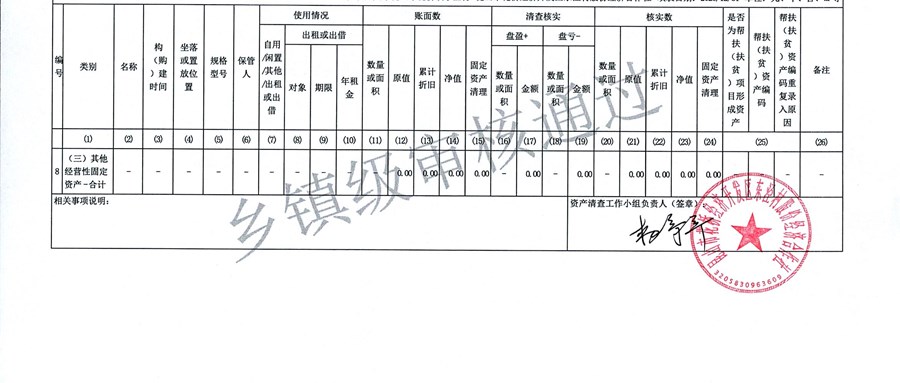 使用情况 账面数 清查核实 核实数
出租或出借 盘盈+ 盘亏-
编号 类别 名称 构（购）建时间 坐落或置放位置 规格型号 保管人 自用/闲置/其他/出租或出借 对象 期限 年租金 数量或面积 原值 累计折旧 净值 固定资产清理 数量或面积 金额 数量或面积 金额 数量或面积 原值 累计折旧 净值 固定资产清理 是否为帮扶（扶贫）项目形成资产 帮扶（扶贫）资产编码 帮扶（扶贫）资产编码重复录入原因 备注
(1) (2) (3) (4) (5) (6) (7) (8) (9) (10) (11) (12) (13) (14) (15) (16) (17) (18) (19) (20) (21) (22) (23) (24) (25) (26)
8 （三）其他经营性固定资产-合计 - - - - - - - - - - 0.00 0.00 0.00 0.00 - 0.00 - 0.00 - 0.00 0.00 0.00 0.00 - - - -
相关事项说明： 资产清查工作小组负责人（签章）：
乡镇级审核通过
3205830963609